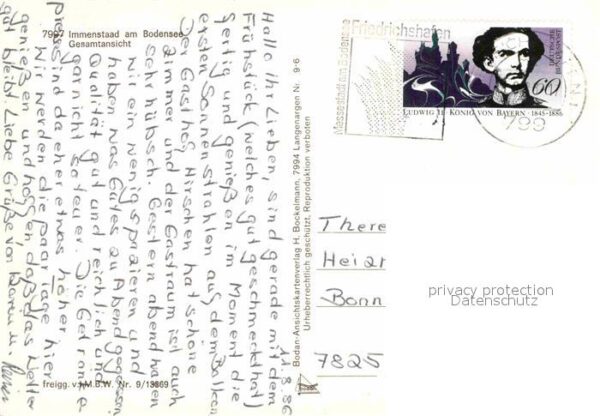 7997 Immenstaad am Bodensee
Gesamtansicht
11.8.86
Hallo ihr Lieben, sind gerade mit dem
Frühstück (welches gut geschmeckt hat)
fertig und genießen im Moment die
ersten Sonnenstrahlen auf dem Balkon
Der Gasthof Hirschen hat schöne
Zimmer und der Gastraum ist auch
sehr hübsch. Gestern abend waren
wir ein wenig spazieren und
haben was Gutes zu Abend gegessen.
Qualität gut und reichlich und
gar nicht so teuer. Die Getränke
preise sind da eher etwas höher.
Wir werden die paar Tage hier
genießen und hoffen daß das Wetter
gut bleibt. Liebe Grüße von
freigg. v. M.B.W. Nr. 9/13869
Bodan-Ansichtskartenverlag H. Bockelmann, 7994 Langenargen Nr. 9-6
Urheberrechtlich geschützt, Reproduktion verboten
Friedrichshafen
Messestadt am Bodensee
799
DEUTSCHE
BUNDESPOST
60
LUDWIG II. KÖNIG VON BAYERN · 1845-1886
There
Heidr
Bonn
7825
privacy protection
Datenschutz